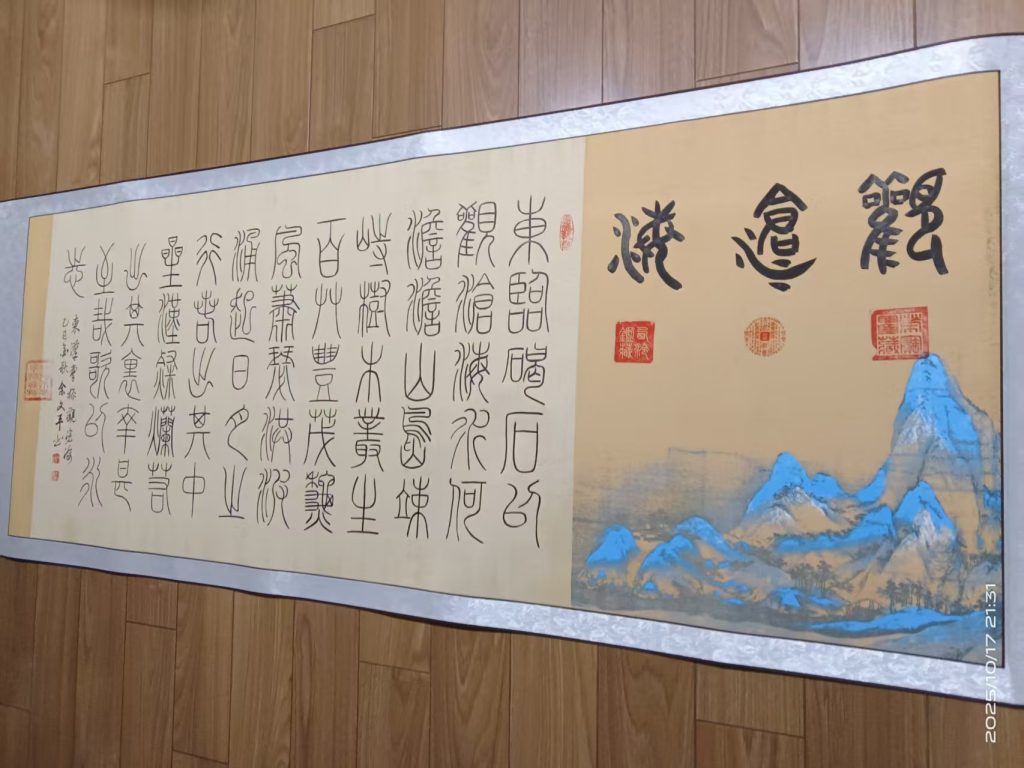 觀滄海
東臨碣石以
觀滄海水何
澹澹山島竦
峙樹木叢生
百艸豐茂秋
風蕭瑟洪波
涌起日月之
行若出其中
星漢燦爛若
出其裏幸甚
至哉歌以詠
志
東漢曹操觀滄海
乙巳
2025/10/17 21:31